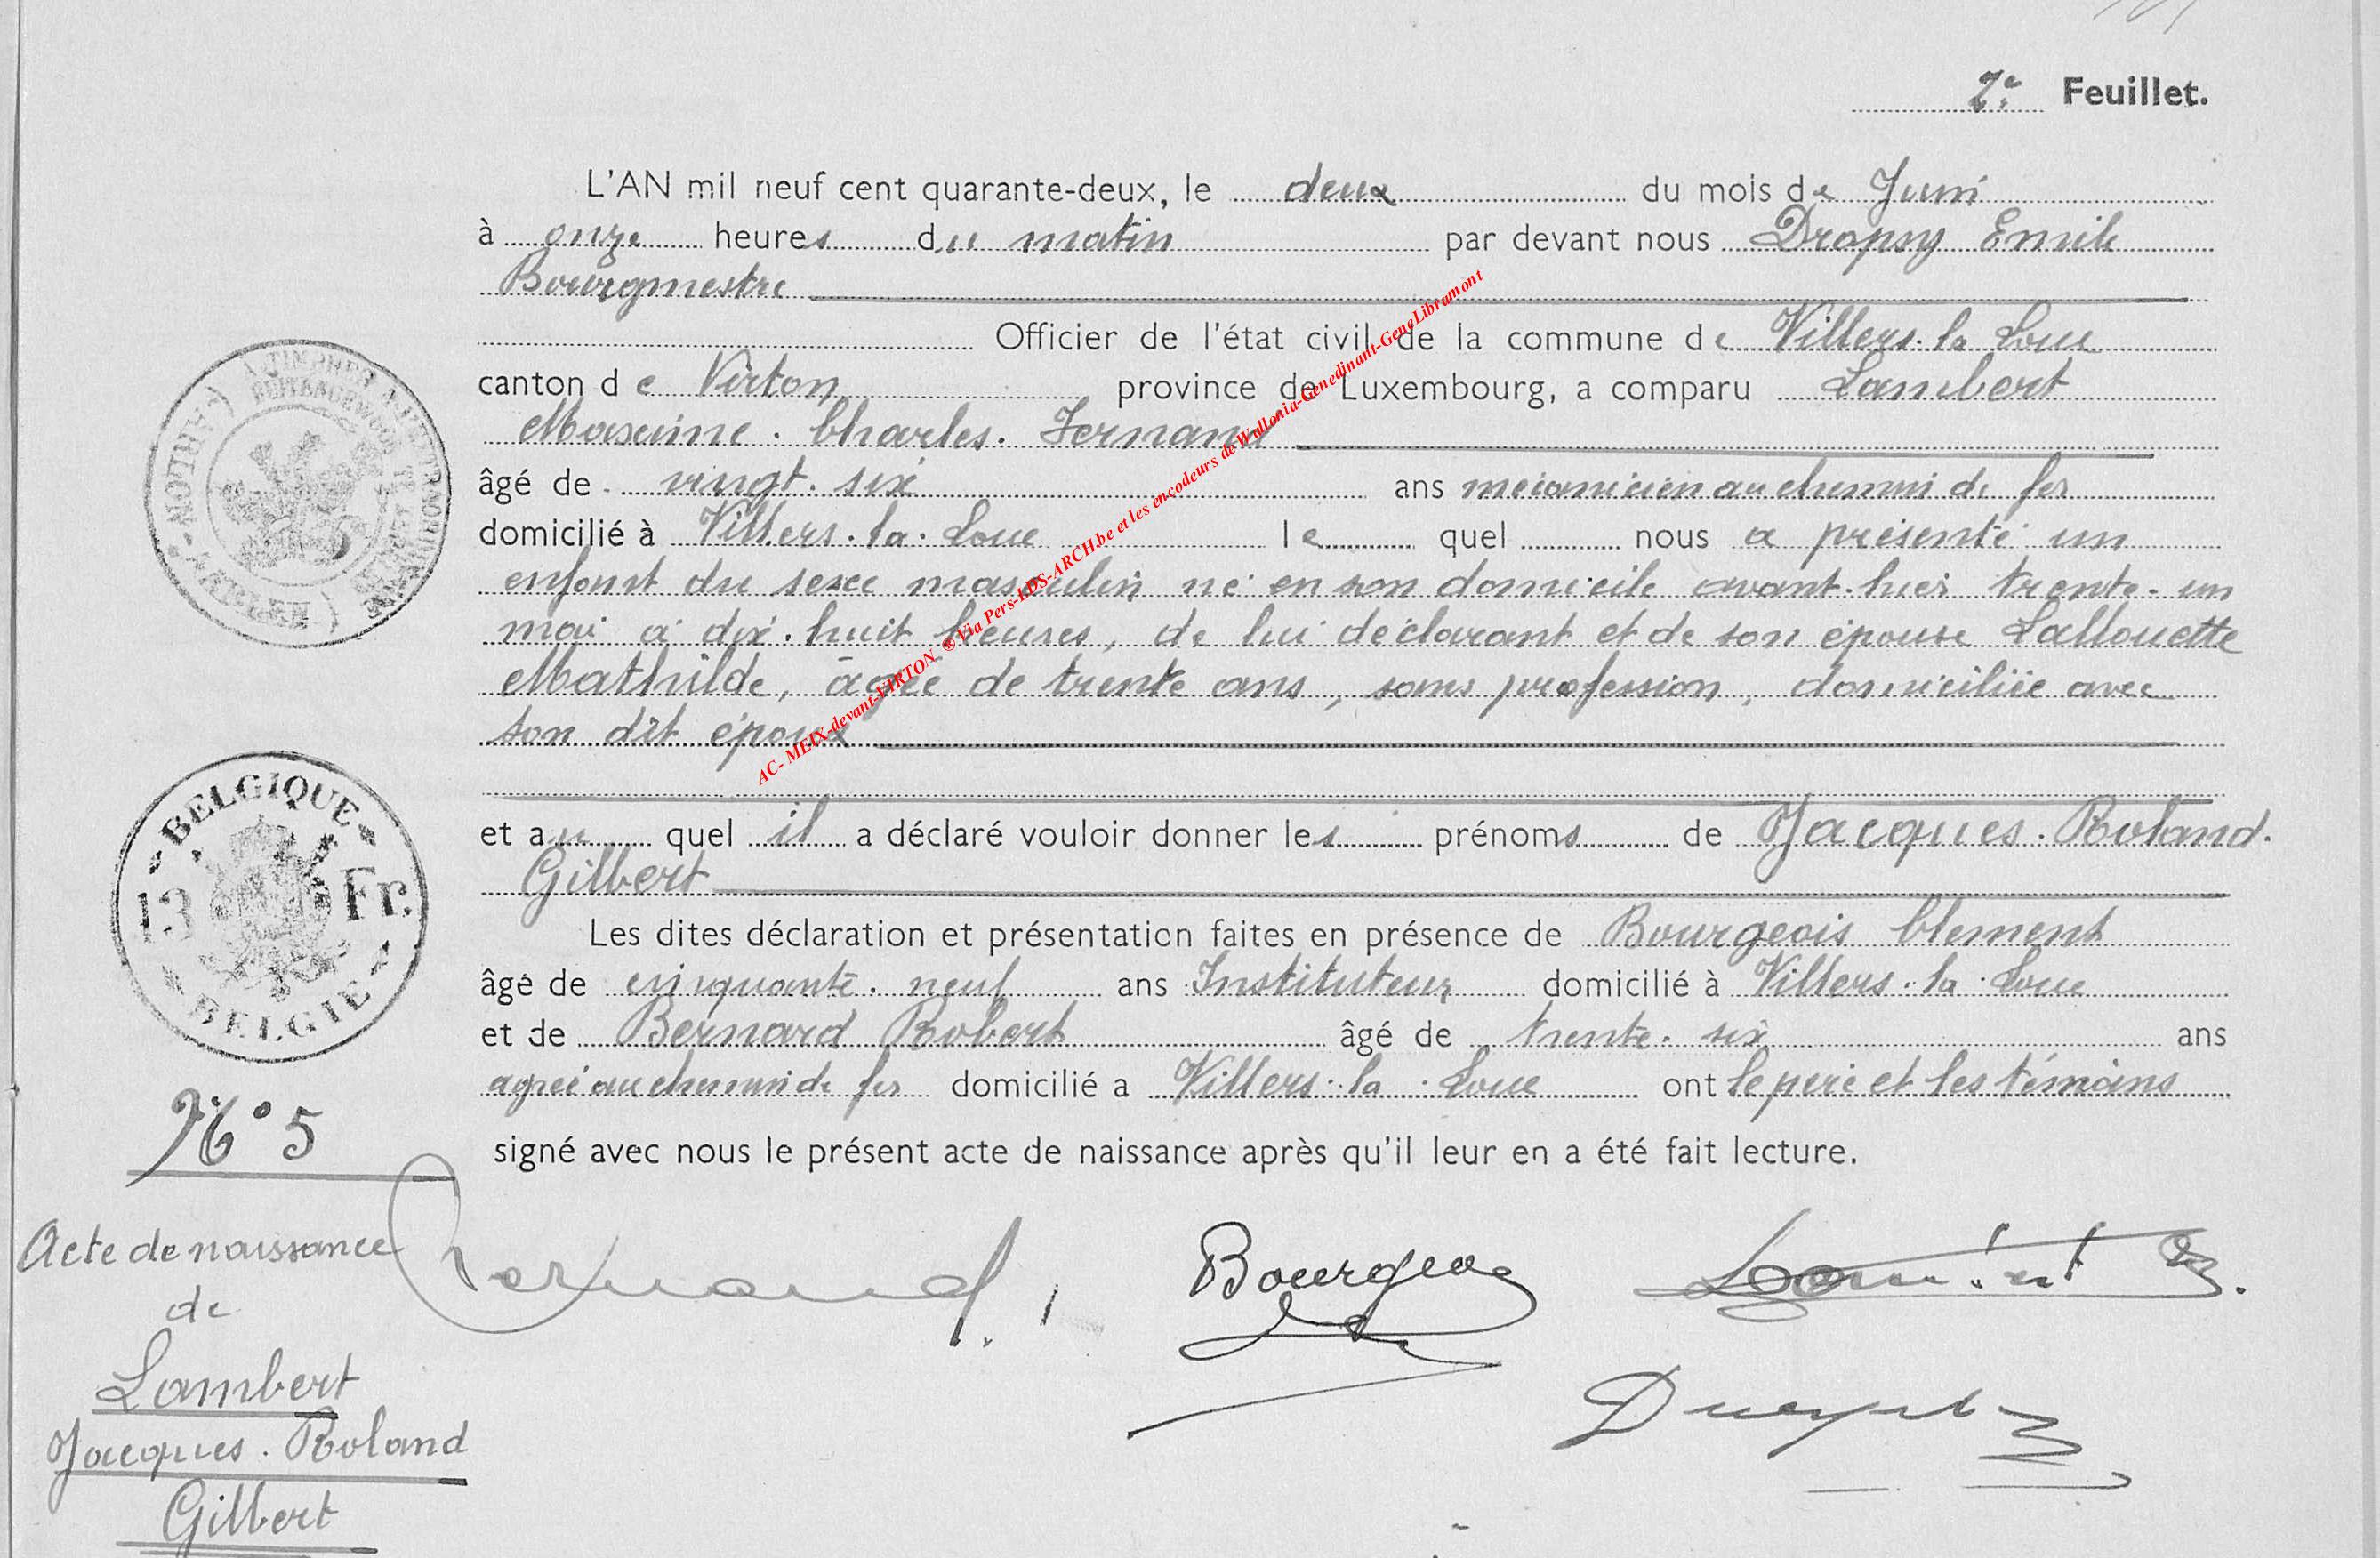 2e Feuillet.
L'AN mil neuf cent quarante-deux, le deux du mois de Juin
à onze heures du matin par devant nous Dropsy Emile
Bourgmestre
Officier de l'état civil de la commune de Villers-la-Loue
canton de Virton province de Luxembourg, a comparu Lambert
Maxime. Charles. Fernand
âgé de vingt-six ans mécanicien au chemin de fer
domicilié à Villers-la-Loue le quel nous a présenté un
enfant du sexe masculin né en son domicile avant-hier trente-un
mai à dix-huit heures, de lui déclarant et de son épouse Lallouette
Mathilde, âgée de trente ans, sans profession, domiciliée avec
son dit époux
et au quel il a déclaré vouloir donner les prénoms de Jacques-Roland-
Gilbert
Les dites déclaration et présentation faites en présence de Bourgeois Clement
âgé de cinquante-neuf ans Instituteur domicilié à Villers-la-Loue
et de Bernard Robert âgé de trente-six ans
agréé au chemin de fer domicilié a Villers-la-Loue ont le père et les témoins
signé avec nous le présent acte de naissance après qu'il leur en a été fait lecture.
AC- MEIX-devant-VIRTON ©Via Pers-LDS-ARCH.be et les encodeurs de Wallonia-Genedinant-GeneLibramont
BELGIQUE
13 Fr.
BELGIË
N° 5
Acte de naissance
de
Lambert
Jacques. Roland
Gilbert
Bourgeois